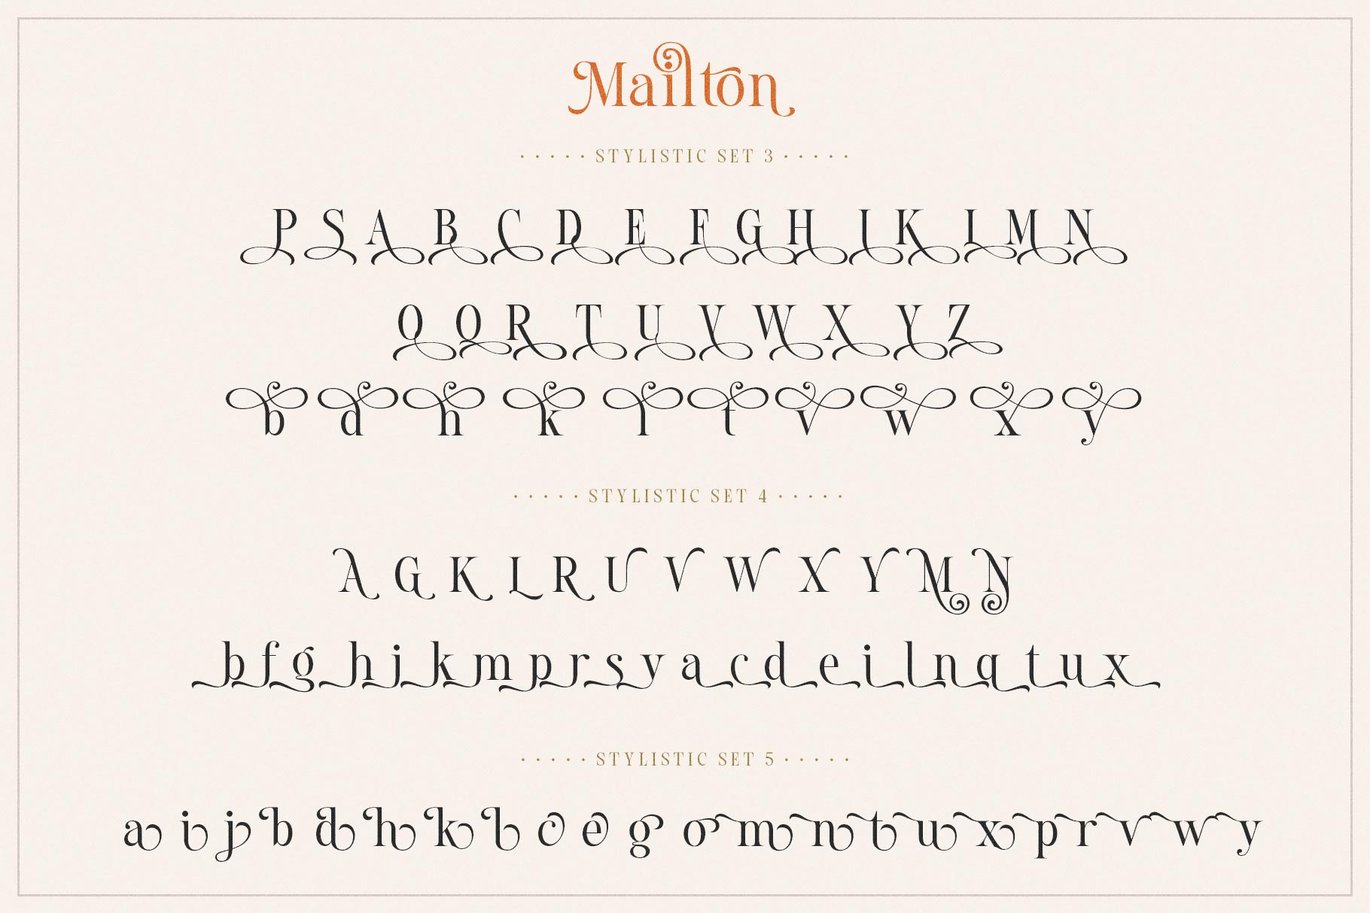 Mailton
· · · · · STYLISTIC SET 3 · · · · ·
P S A B C D E F G H I K L M N
O Q R T U V W X Y Z
b d h k l t v w x y
· · · · · STYLISTIC SET 4 · · · · ·
A G K L R U V W X Y M N
b f g h j k m p r s v a c d e i l n q t u x
· · · · · STYLISTIC SET 5 · · · · ·
a i j b d h k l c e g o m n t u x p r v w y